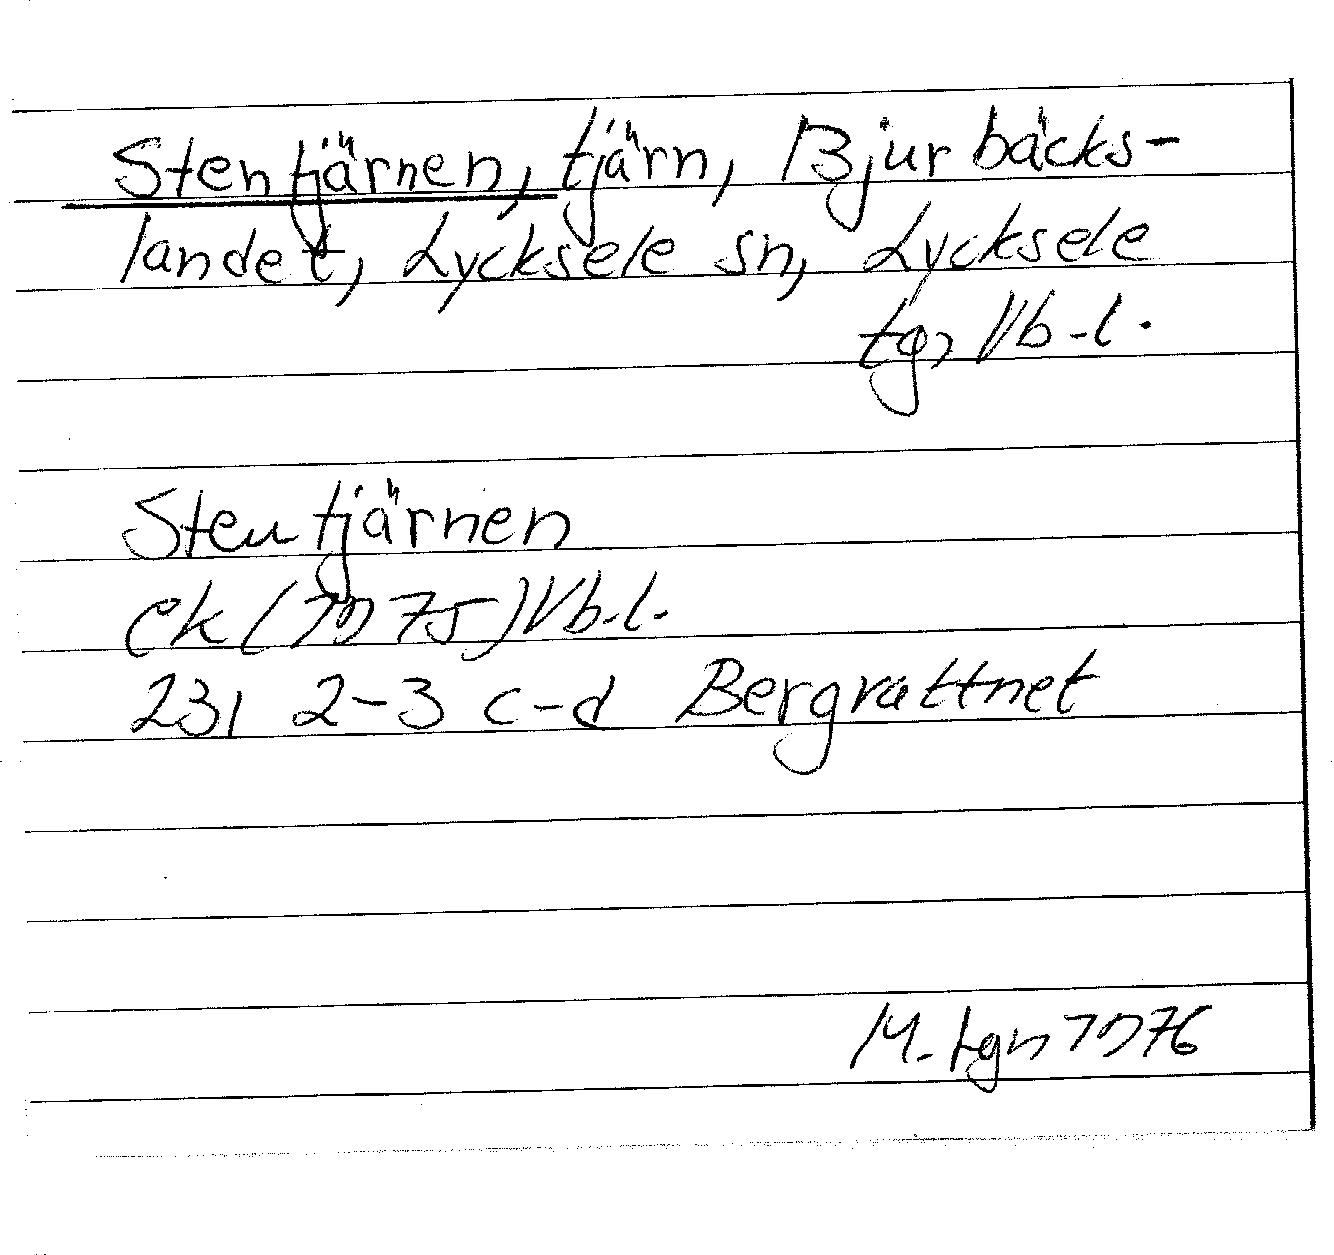 Stentjärnen, tjärn, Bjurbäcks-
landet, Lycksele sn, Lycksele
tg, Vb-l.
Stentjärnen
ek (1975) Vb.l.
231 2-3 c-d Bergvattnet
M. 1976